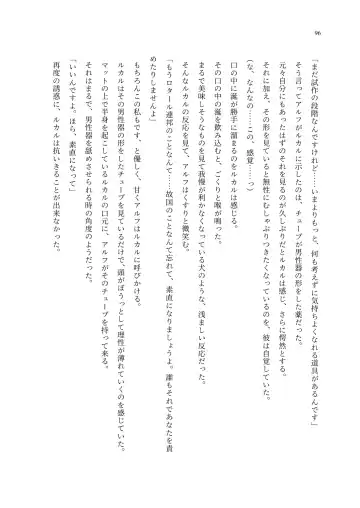 96
「まだ試作の段階なんですけど……いまよりもっと、何も考えずに気持ちよくなれる道具があるんです」
そう言ってアルフがルカルに示したのは、チューブが男性器の形をした薬だった。
元を自分にもあったはずのそれを見るのが久しぶりだとルカルは感じ、さらに愕然とする。
それに加え、その形を見ていると無性にむしゃぶりつきたくなっているのを、彼は自覚していた。
(な、なんなの……この、感覚……っ)
口の中に涎が勝手に溜まるのをルカルは感じる。
その口の中の涎を飲み込むと、ごくりと喉が鳴った。
まるで美味しそうなものを見て我慢が利かなくなっている犬のような、浅ましい反応だった。
そんなルカルの反応を見て、アルフはくすりと微笑む。
「もうロタール連邦のことなんて……故国のことなんて忘れて、素直になりましょうよ。誰もそれであなたを責
めたりしませんよ」
もちろんこの私もです と優しく、甘くアルフはルカルに呼びかける。
ルカルはその男性器の形をしたチューブを見ているだけで、頭がぼうっとして理性が薄れていくのを感じていた。
マットの上で半身を起こしているルカルの口元に、アルフがそのチューブを持って来る。
それはまるで、男性器を舐めさせられる時の角度のようだった。
「いいんですよ。ほら、素直になって」
再度の誘惑に、ルカルは抗いきることが出来なかった。